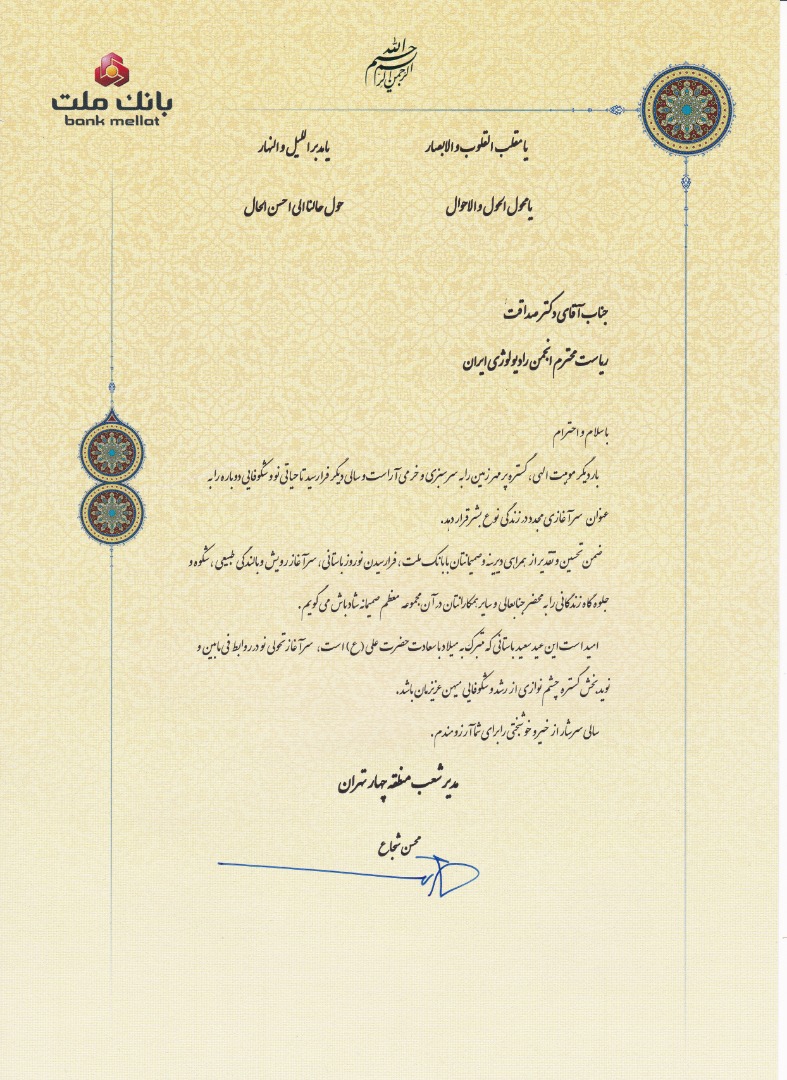 بسم الله الرحمن الرحیم
بانک ملت
bank mellat
یا مقلب القلوب والابصار یا مدبر اللیل و النهار
یا محول الحول و الاحوال حول حالنا الی احسن الحال
جناب آقای دکتر صداقت
ریاست محترم انجمن رادیولوژی ایران
با سلام و احترام
بار دیگر موهبت الهی، گستره پر مهر زمین را به سرسبزی و خرمی آراست و سالی دیگر فرا رسید تا حیاتی نو و شکوفایی دوباره را به
عنوان سرآغازی مجدد در زندگی نوع بشر قرار دهد.
ضمن تحسین و تقدیر از همراهی دیرینه و صمیمانه‌تان با بانک ملت، فرا رسیدن نوروز باستانی، سرآغاز رویش و بالندگی طبیعی، شکوه و
جلوه گاه زندگانی را به محضر جنابعالی و سایر همکارانتان در آن مجموعه معظم صمیمانه شادباش می گویم.
امید است این عید سعید باستانی که متبرک به میلاد با سعادت حضرت علی (ع) است، سرآغاز تحولی نو در روابط فی مابین و
نوید بخش گستره چشم نوازی از رشد و شکوفایی میهن عزیزمان باشد.
سالی سرشار از خیر و خوشبختی را برای شما آرزومندم.
مدیر شعب منطقه چهار تهران
محسن شجاع